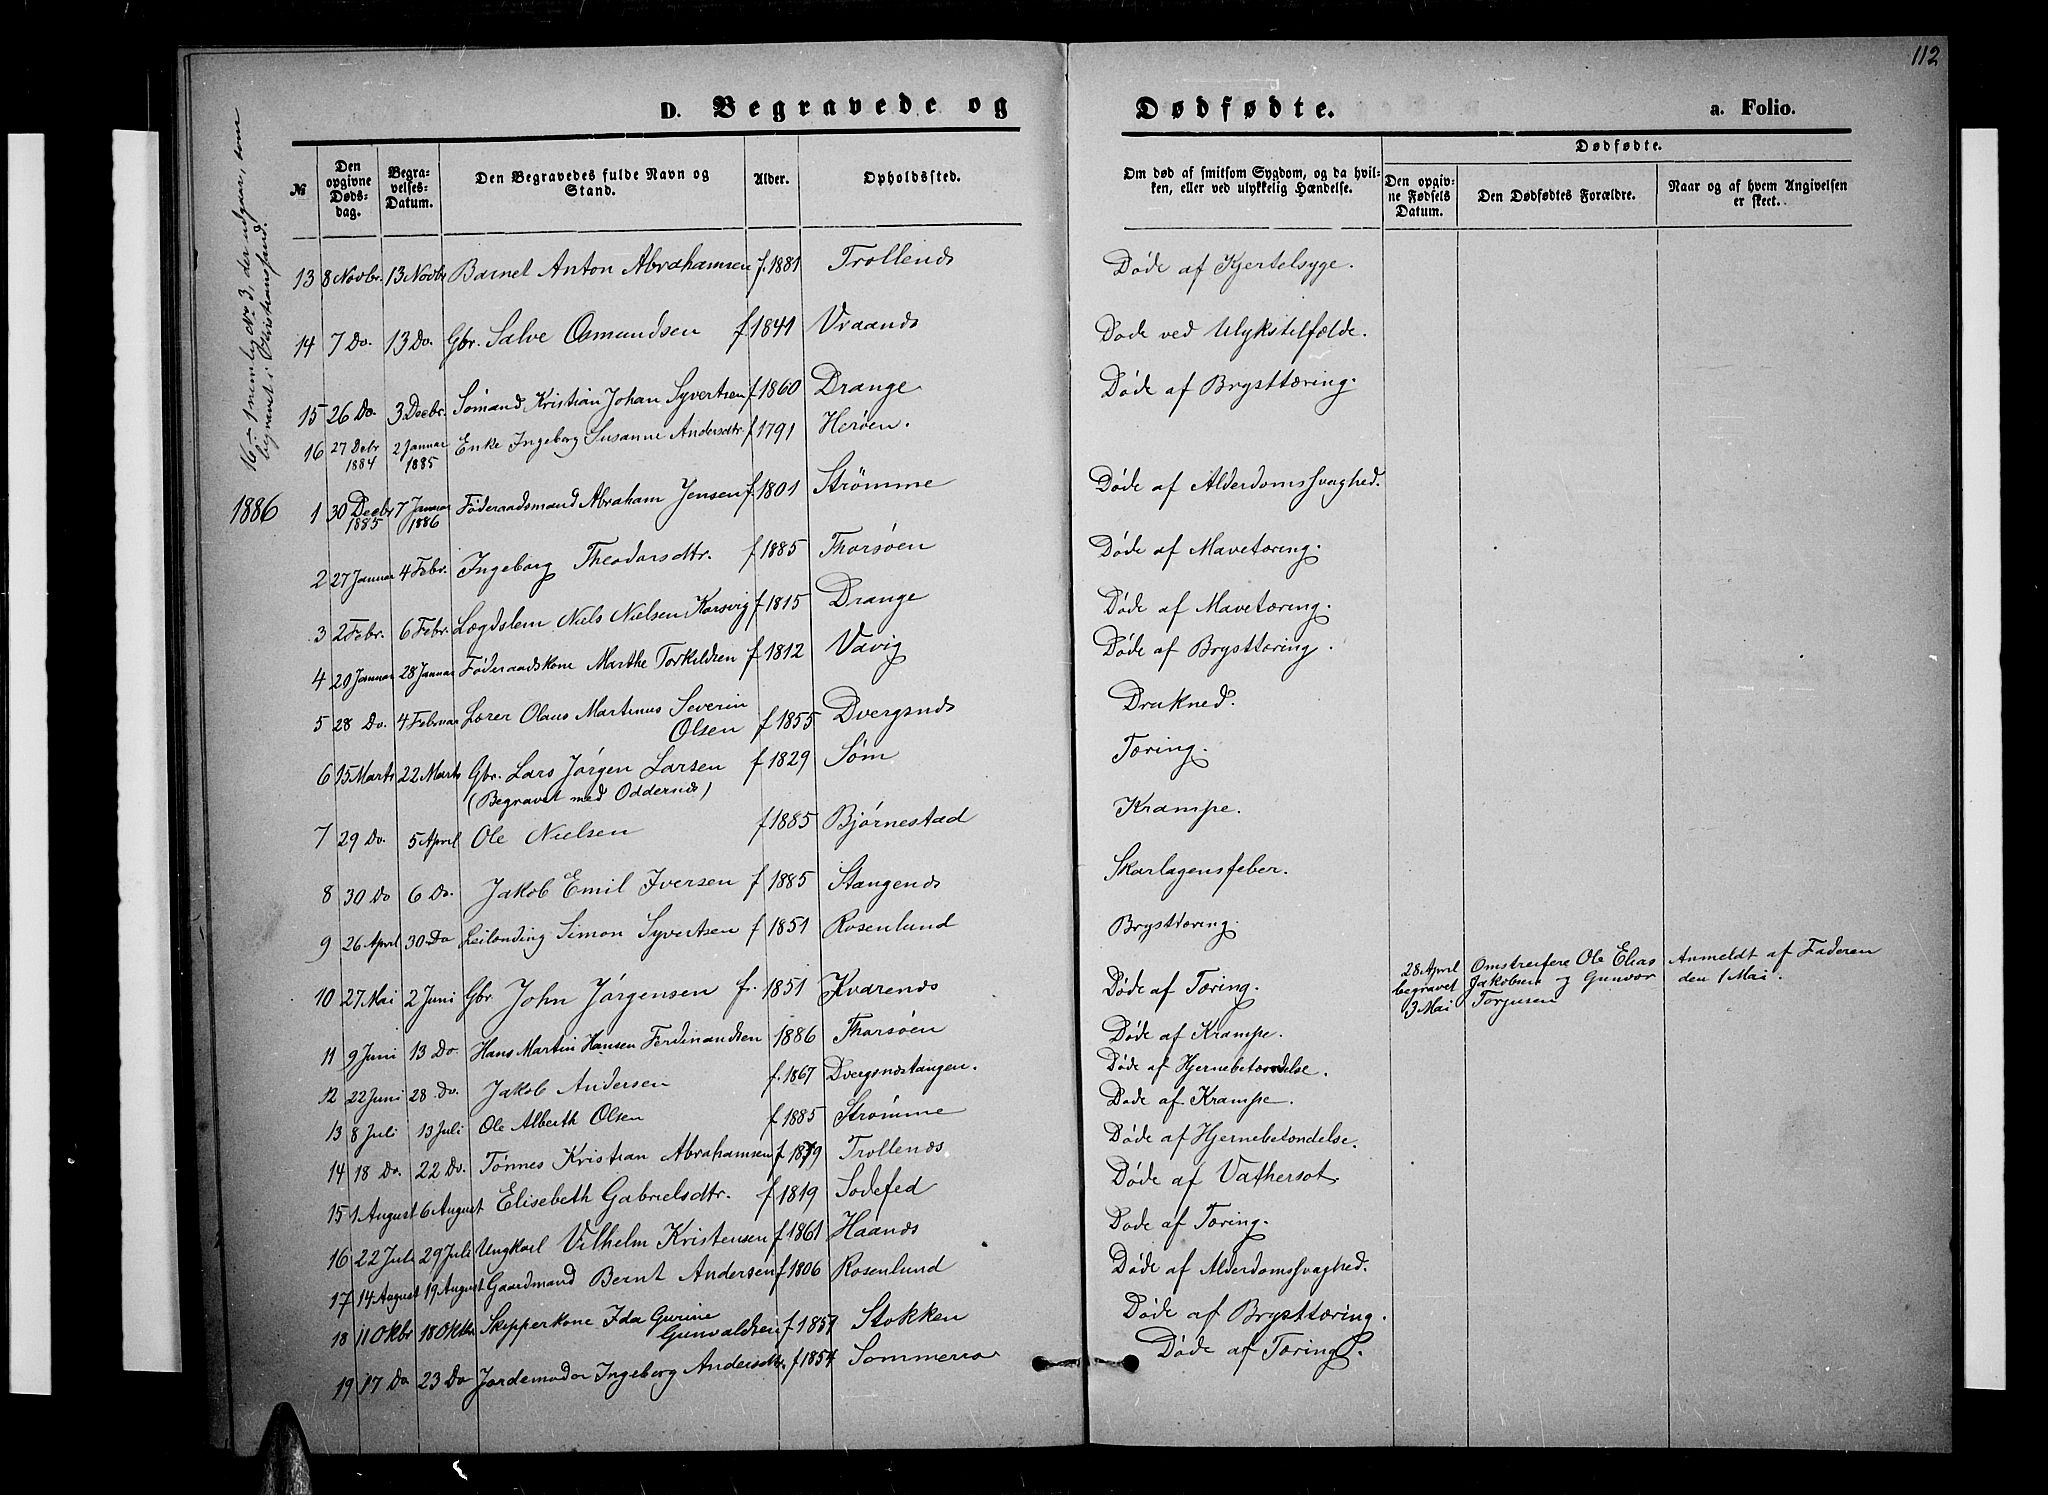 112
D. Begravede og Dødfødte. a. Folio.
№ Den opgivne Døds-dag. Begra-velses-Datum. Den Begravedes fulde Navn og Stand. Alder. Opholdssted. Om død af smitsom Sygdom, og da hvil-ken, eller ved ulykkelig Hændelse. Dødfødte.
Den opgiv-ne Fødsels Datum. Den Dødfødtes Forældre. Naar og af hvem Angivelsen er skeet.
16 - 1 nemlig No 3, der udgaar, som
begravet i Christianssand.
13 8 Novbr. 13 Novbr Barnet Anton Abrahamsen f. 1881 Trollends Døde af Kjertelsyge.
14 7 Do. 13 Do. Gbr. Salve Osmundsen f 1841 Vraands Døde ved Ulykstilfælde.
15 26 Do. 3 Decbr. Sømand Kristian Johan Syvertsen f 1860 Drange Døde af Brysttæring.
16 27 Debr 1884 2 Januar 1885 Enke Ingeborg Susanne Andersdtr. f 1791 Herøen.
1886 1 30 Decbr 1885 7 Januar 1886 Føderaadsmand Abraham Jensen f. 1801 Strømme Døde af Alderdomssvaghed.
2 27 Januar 4 Febr. Ingeborg Theodorsdtr. f 1885 Tharsøen Døde af Mavetæring.
3 2 Febr. 6 Febr. Lægdslem Niels Nielsen Korsvig f 1815 Drange Døde af Mavetæring.
4 20 Januar 28 Januar Føderaadskone Marthe Torkildsen f 1812 Vavig Døde af Brysttæring.
5 28 Do. 4 Februar Lærer Olaus Martinus Severin
Olsen f 1855 Dvergsnds Druknede.
6 15 Marts 22 Marts Gbr. Lars Jørgen Larsen f 1829 Søm Tæring.
(Begravet med Oddernes)
7 29 Do. 5 April Ole Nielsen f 1885 Bjørnestad Krampe.
8 30 Do 6 Do. Jakob Emil Iversen f 1885 Stangends Skarlagensfeber.
9 26 April 30 Do Leilænding Simon Syvertsen f 1851 Rosenlund Brysttæring.
28 April begravet 3 Mai Omstreifere Ole Elias Jakobsen og Gunvor Torjusen Anmeldt af Faderen den 1 Mai.
10 27 Mai 2 Juni Gbr John Jørgensen f. 1851 Kvarends Døde af Tæring.
11 9 Juni 13 Do Hans Martin Hansen Ferdinandsen 1886 Tharsøen Døde af Krampe.
12 22 Juni 28 Do. Jakob Andersen f. 1867 Dvergsndstangen. Døde af Hjernebetændelse.
13 8 Juli 13 Juli Ole Alberth Olsen f 1885 Strømme Døde af Krampe.
14 18 Do. 22 Do. Tønnes Kristian Abrahamsen f 1879 Trollends Døde af Hjernebetændelse.
15 1 August 6 August Elisebeth Gabrielsdtr. f 1819 Sodefed Døde af Vathersot.
16 22 Juli 29 Juli Ungkarl Vilhelm Kristensen f 1861 Haands Døde af Tæring.
17 14 August 19 August Gaardmand Bernt Andersen f 1806 Rosenlund Døde af Alderdomssvaghed.
18 11 Oktbr 18 Oktbr Skipperkone Ida Gurine
Gunvaldsen f 1857 Stokken Døde af Brysttæring.
19 17 Do 23 Do Jordemoder Ingeborg Andersdtr. f 1854 Sommerro Døde af Tæring.